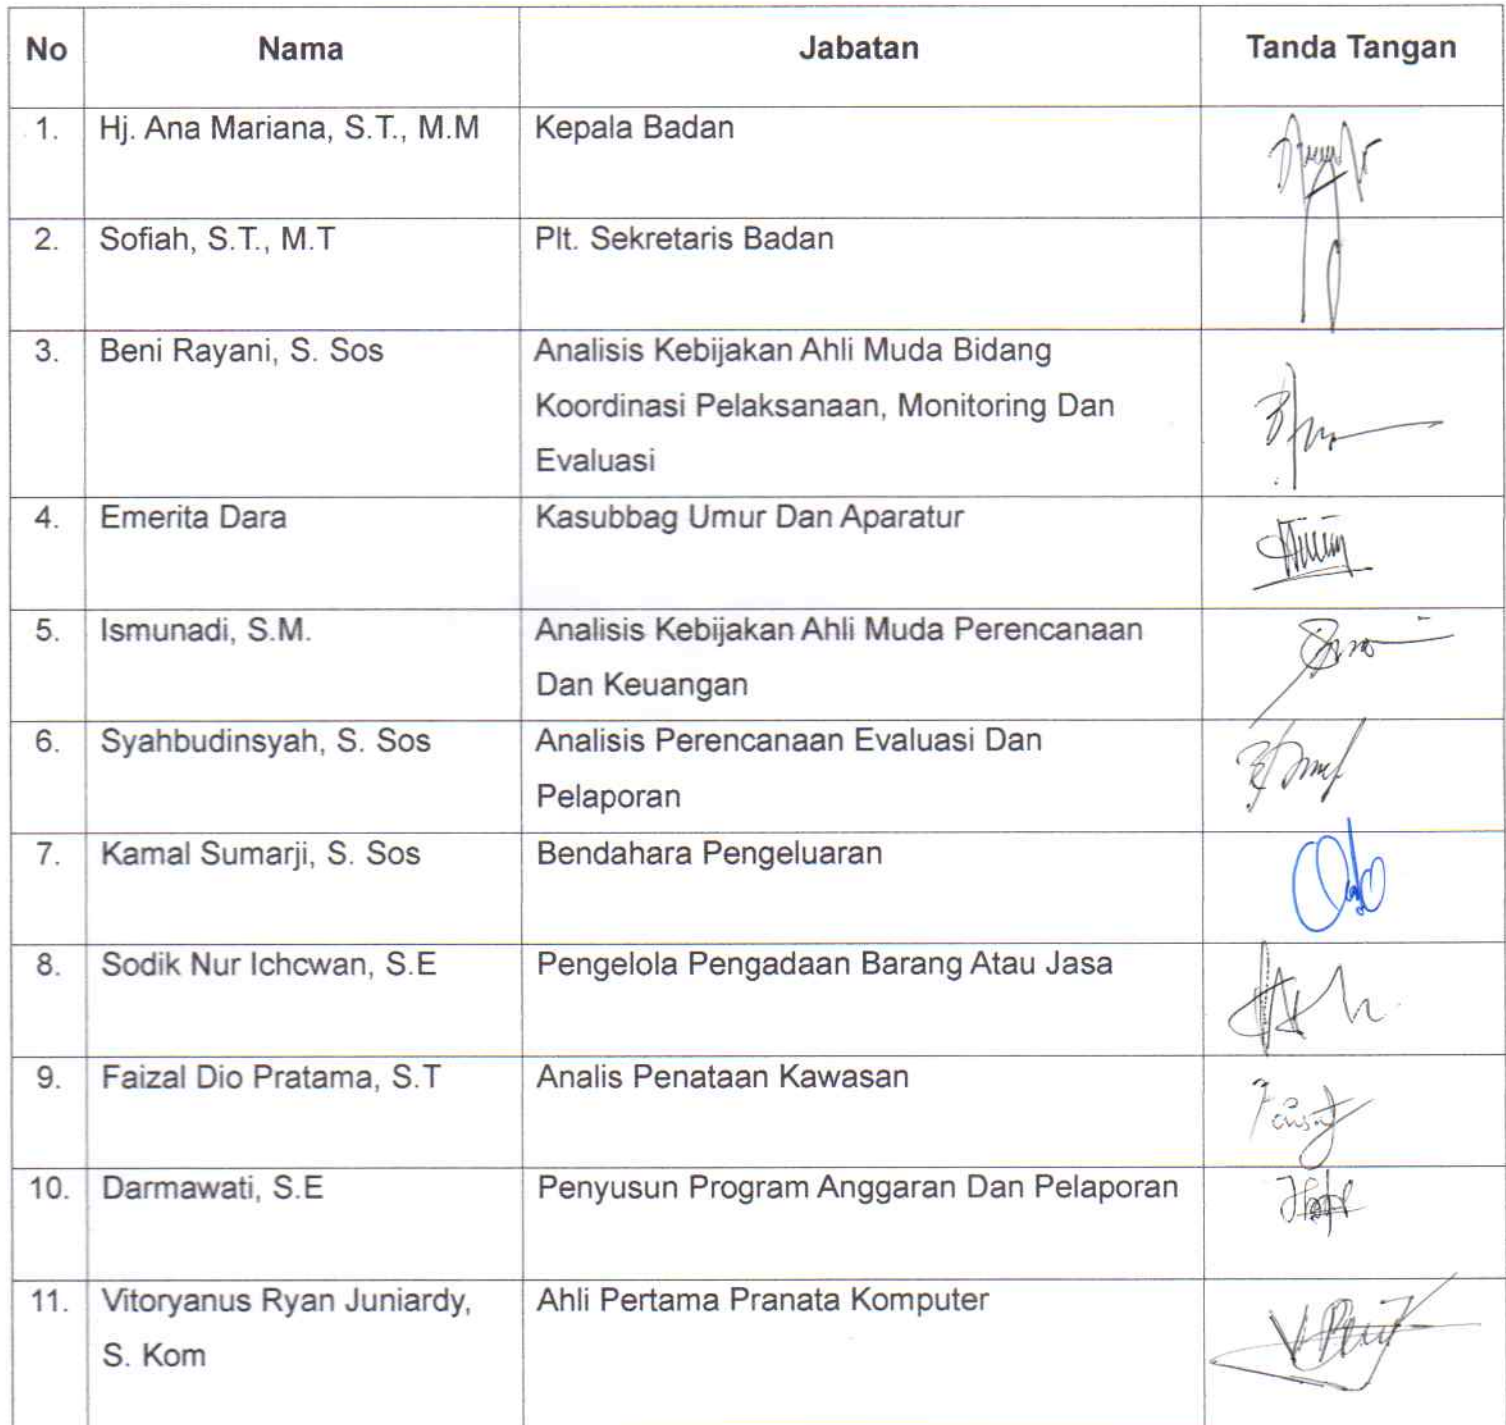 No Nama Jabatan Tanda Tangan
1. Hj. Ana Mariana, S.T., M.M Kepala Badan
2. Sofiah, S.T., M.T Plt. Sekretaris Badan
3. Beni Rayani, S. Sos Analisis Kebijakan Ahli Muda Bidang
Koordinasi Pelaksanaan, Monitoring Dan
Evaluasi
4. Emerita Dara Kasubbag Umur Dan Aparatur
5. Ismunadi, S.M. Analisis Kebijakan Ahli Muda Perencanaan
Dan Keuangan
6. Syahbudinsyah, S. Sos Analisis Perencanaan Evaluasi Dan
Pelaporan
7. Kamal Sumarji, S. Sos Bendahara Pengeluaran
8. Sodik Nur Ichcwan, S.E Pengelola Pengadaan Barang Atau Jasa
9. Faizal Dio Pratama, S.T Analis Penataan Kawasan
10. Darmawati, S.E Penyusun Program Anggaran Dan Pelaporan
11. Vitoryanus Ryan Juniardy, Ahli Pertama Pranata Komputer
S. Kom